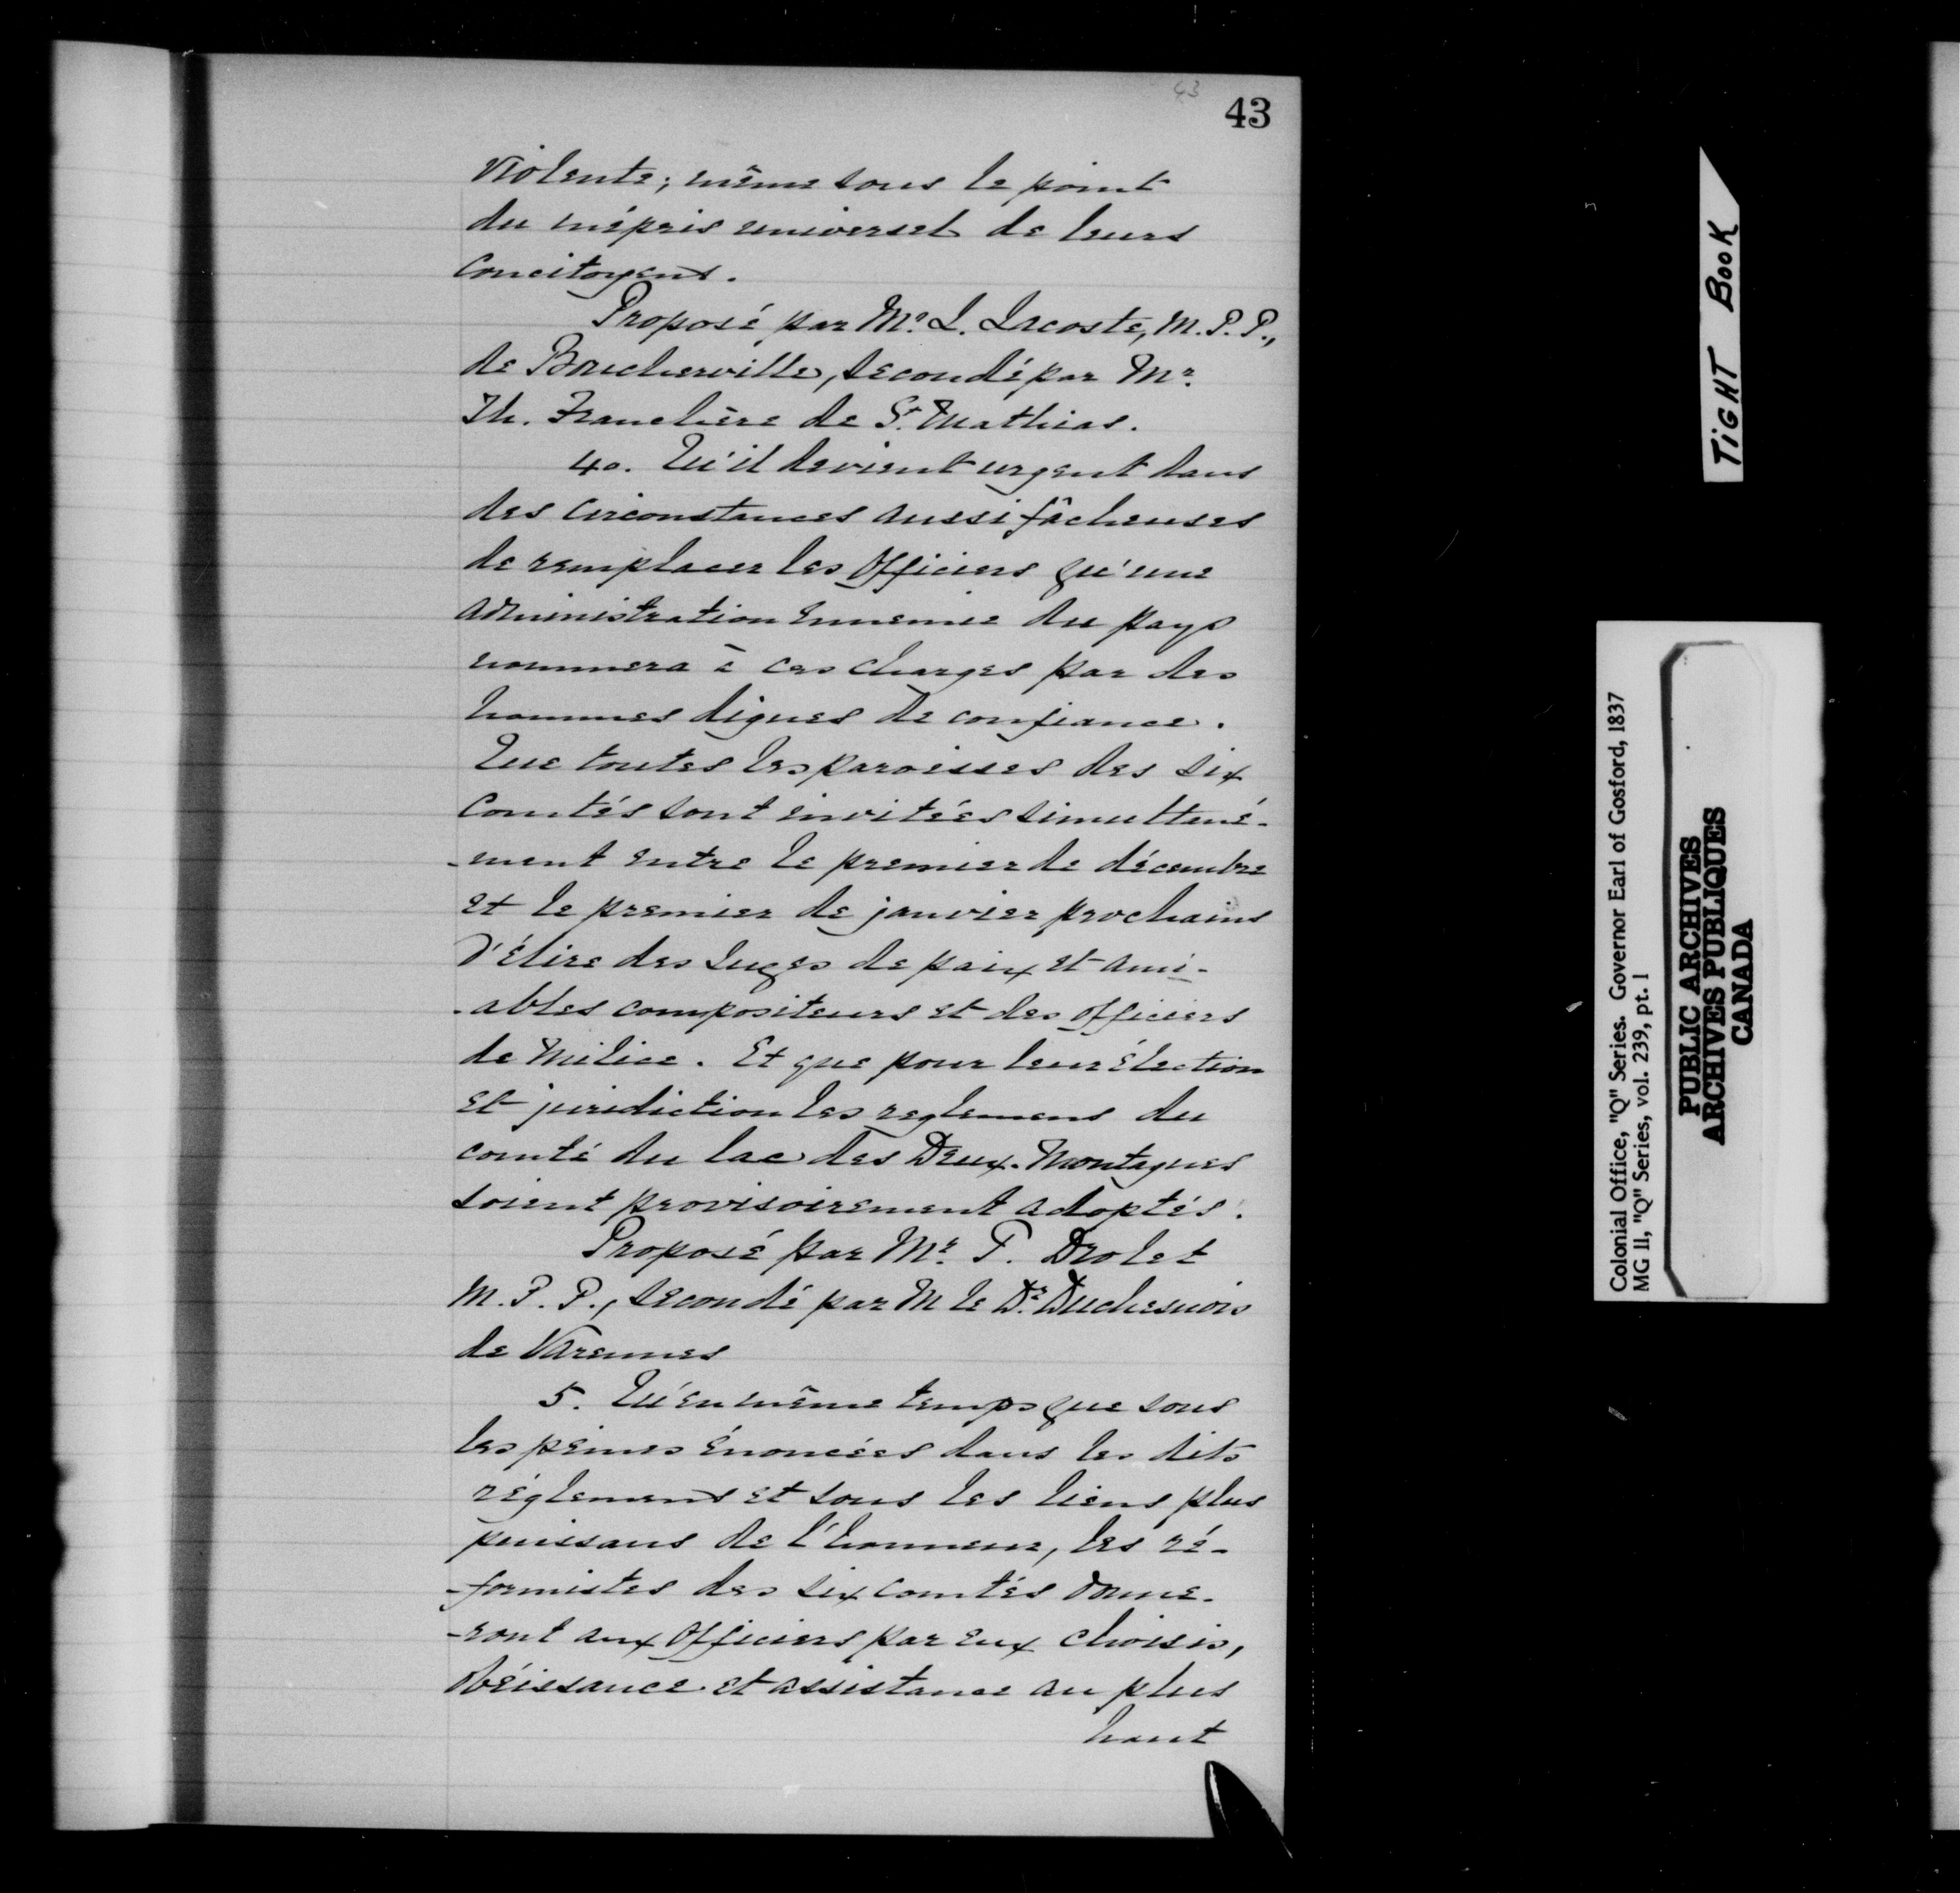 43
43
violente; même sous le point
du mépris universel de leurs
concitoyens.
Proposé par Mr. L. Lacoste, M.P.P.,
de Boucherville, secondé par Mr.
Th. Franchère de St. Mathias.
4o. Qu'il devient urgent dans
des circonstances aussi fâcheuses
de remplacer les Officiers qu'une
administration ennemie du pays
nommera à ces charges par des
hommes dignes de confiance.
Que toutes les paroisses des six
Comtés sont invitées simultané-
-ment entre le premier de décembre
et le premier de janvier prochains
d'élire des Juges de paix et ami-
-ables compositeurs et des officiers
de Milice. Et que pour leur élection
et juridiction les reglemens du
comté du lac des Deux-Montagnes
soient provisoirement adoptés.
Proposé par Mr. P. Drolet
M.P.P., secondé par M le Dr. Duchesnois
de Varennes
5. Qu'en même temps que sous
les peines énoncées dans les dits
réglemens et sous les liens plus
puissans de l'honneur, les ré-
-formistes des six comtés donne-
-ront aux Officiers par eux choisis,
obéissance et assistance au plus
haut
TIGHT BOOK
Colonial Office, "Q" Series. Governor Earl of Gosford, 1837
MG 11, "Q" Series, vol. 239, pt. 1
PUBLIC ARCHIVES
ARCHIVES PUBLIQUES
CANADA